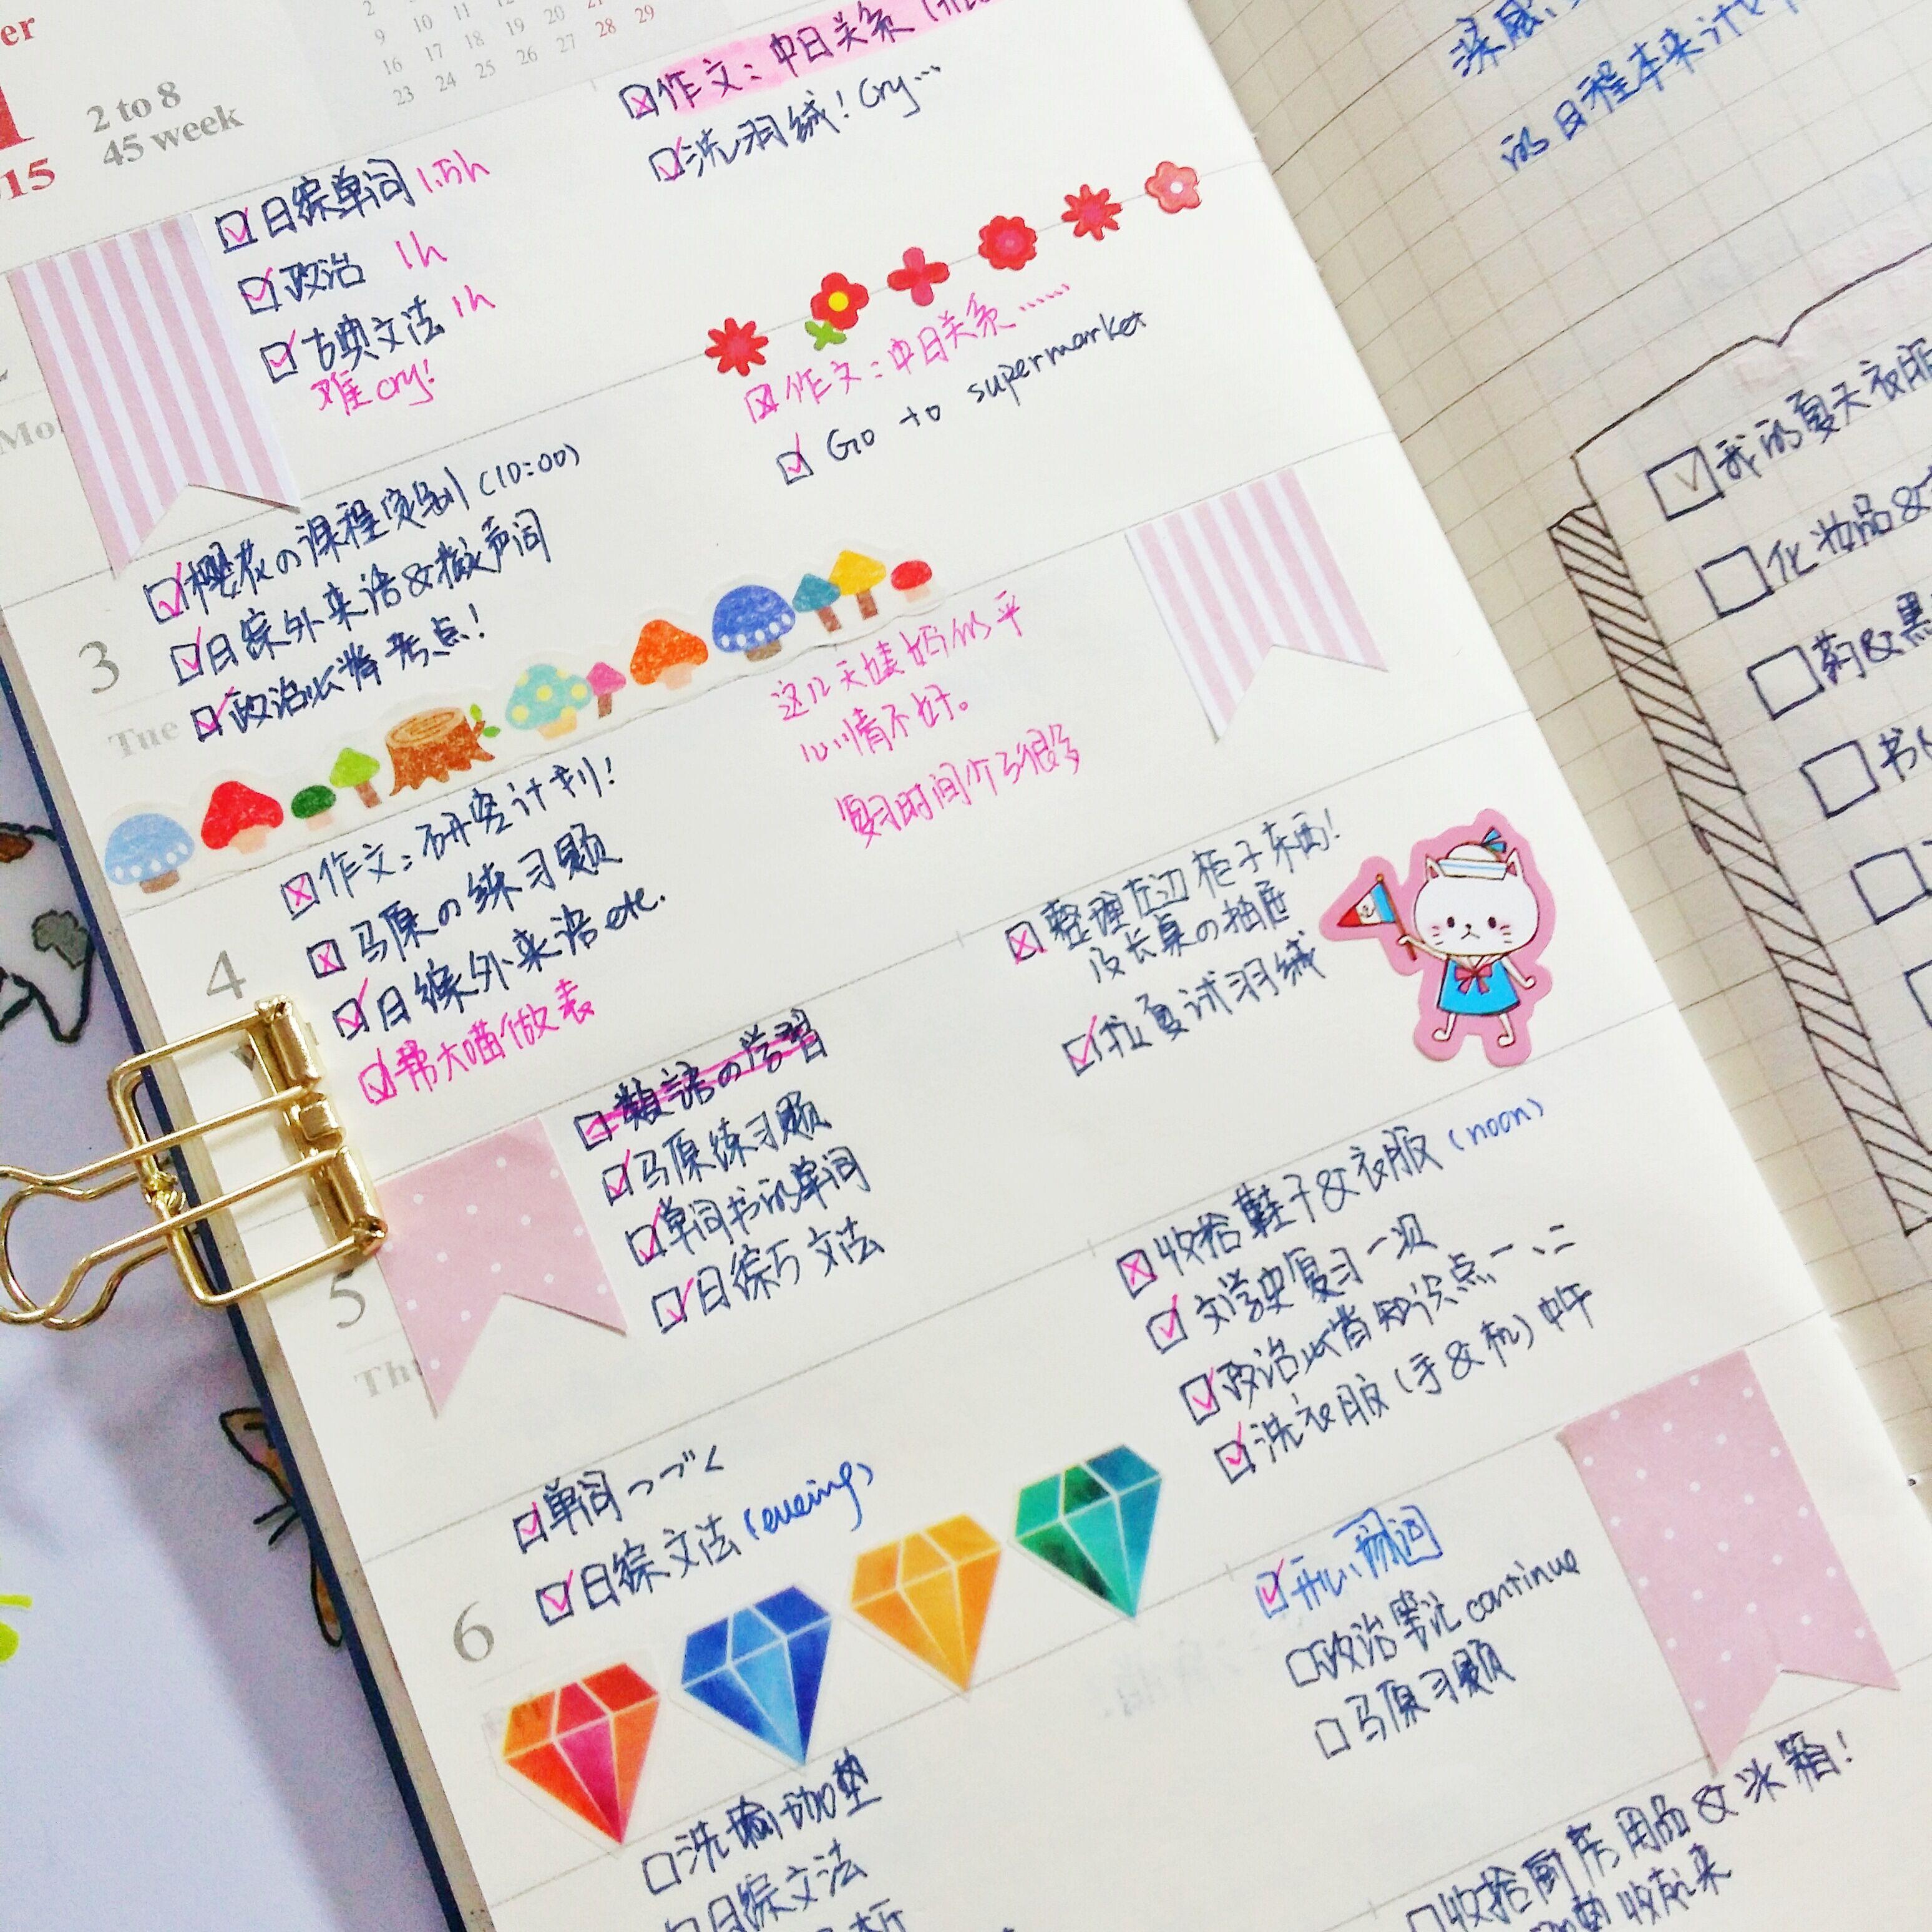 er
2
9 10 11
16 17 18 19 20
23 24 25 26 27 28 29
2 to 8
45 week
15
作文：中日关系
洗羽绒！Cry…
日综单词 1.5h
政治 1h
古典文法 1h
难cry！
Mo
作文：中日关系……
Go to supermarket
樱花の课程 (10:00)
日综外来语&拟声词
政治必背考点！
3
Tue
这几天
心情不好。
复习时间少了很多
作文：研究计划！
马原の练习题
日综外来语etc.
帮大喵做表
4
整理左边柜子东西！
及长桌の抽屉
羽绒
の学習
马原练习题
单词书的单词
日综5文法
5
Thu
收拾鞋子&衣服 (noon)
文学史复习一遍
政治必背知识点一、二
洗衣服 (手&机) 中午
单词つづく
日综文法
6
政治笔记continue
马原习题
洗瑜伽垫
日综文法
收拾厨房用品&冰箱！
收起来
的日程本来计
我的夏天衣服
化妆品&
药&黑